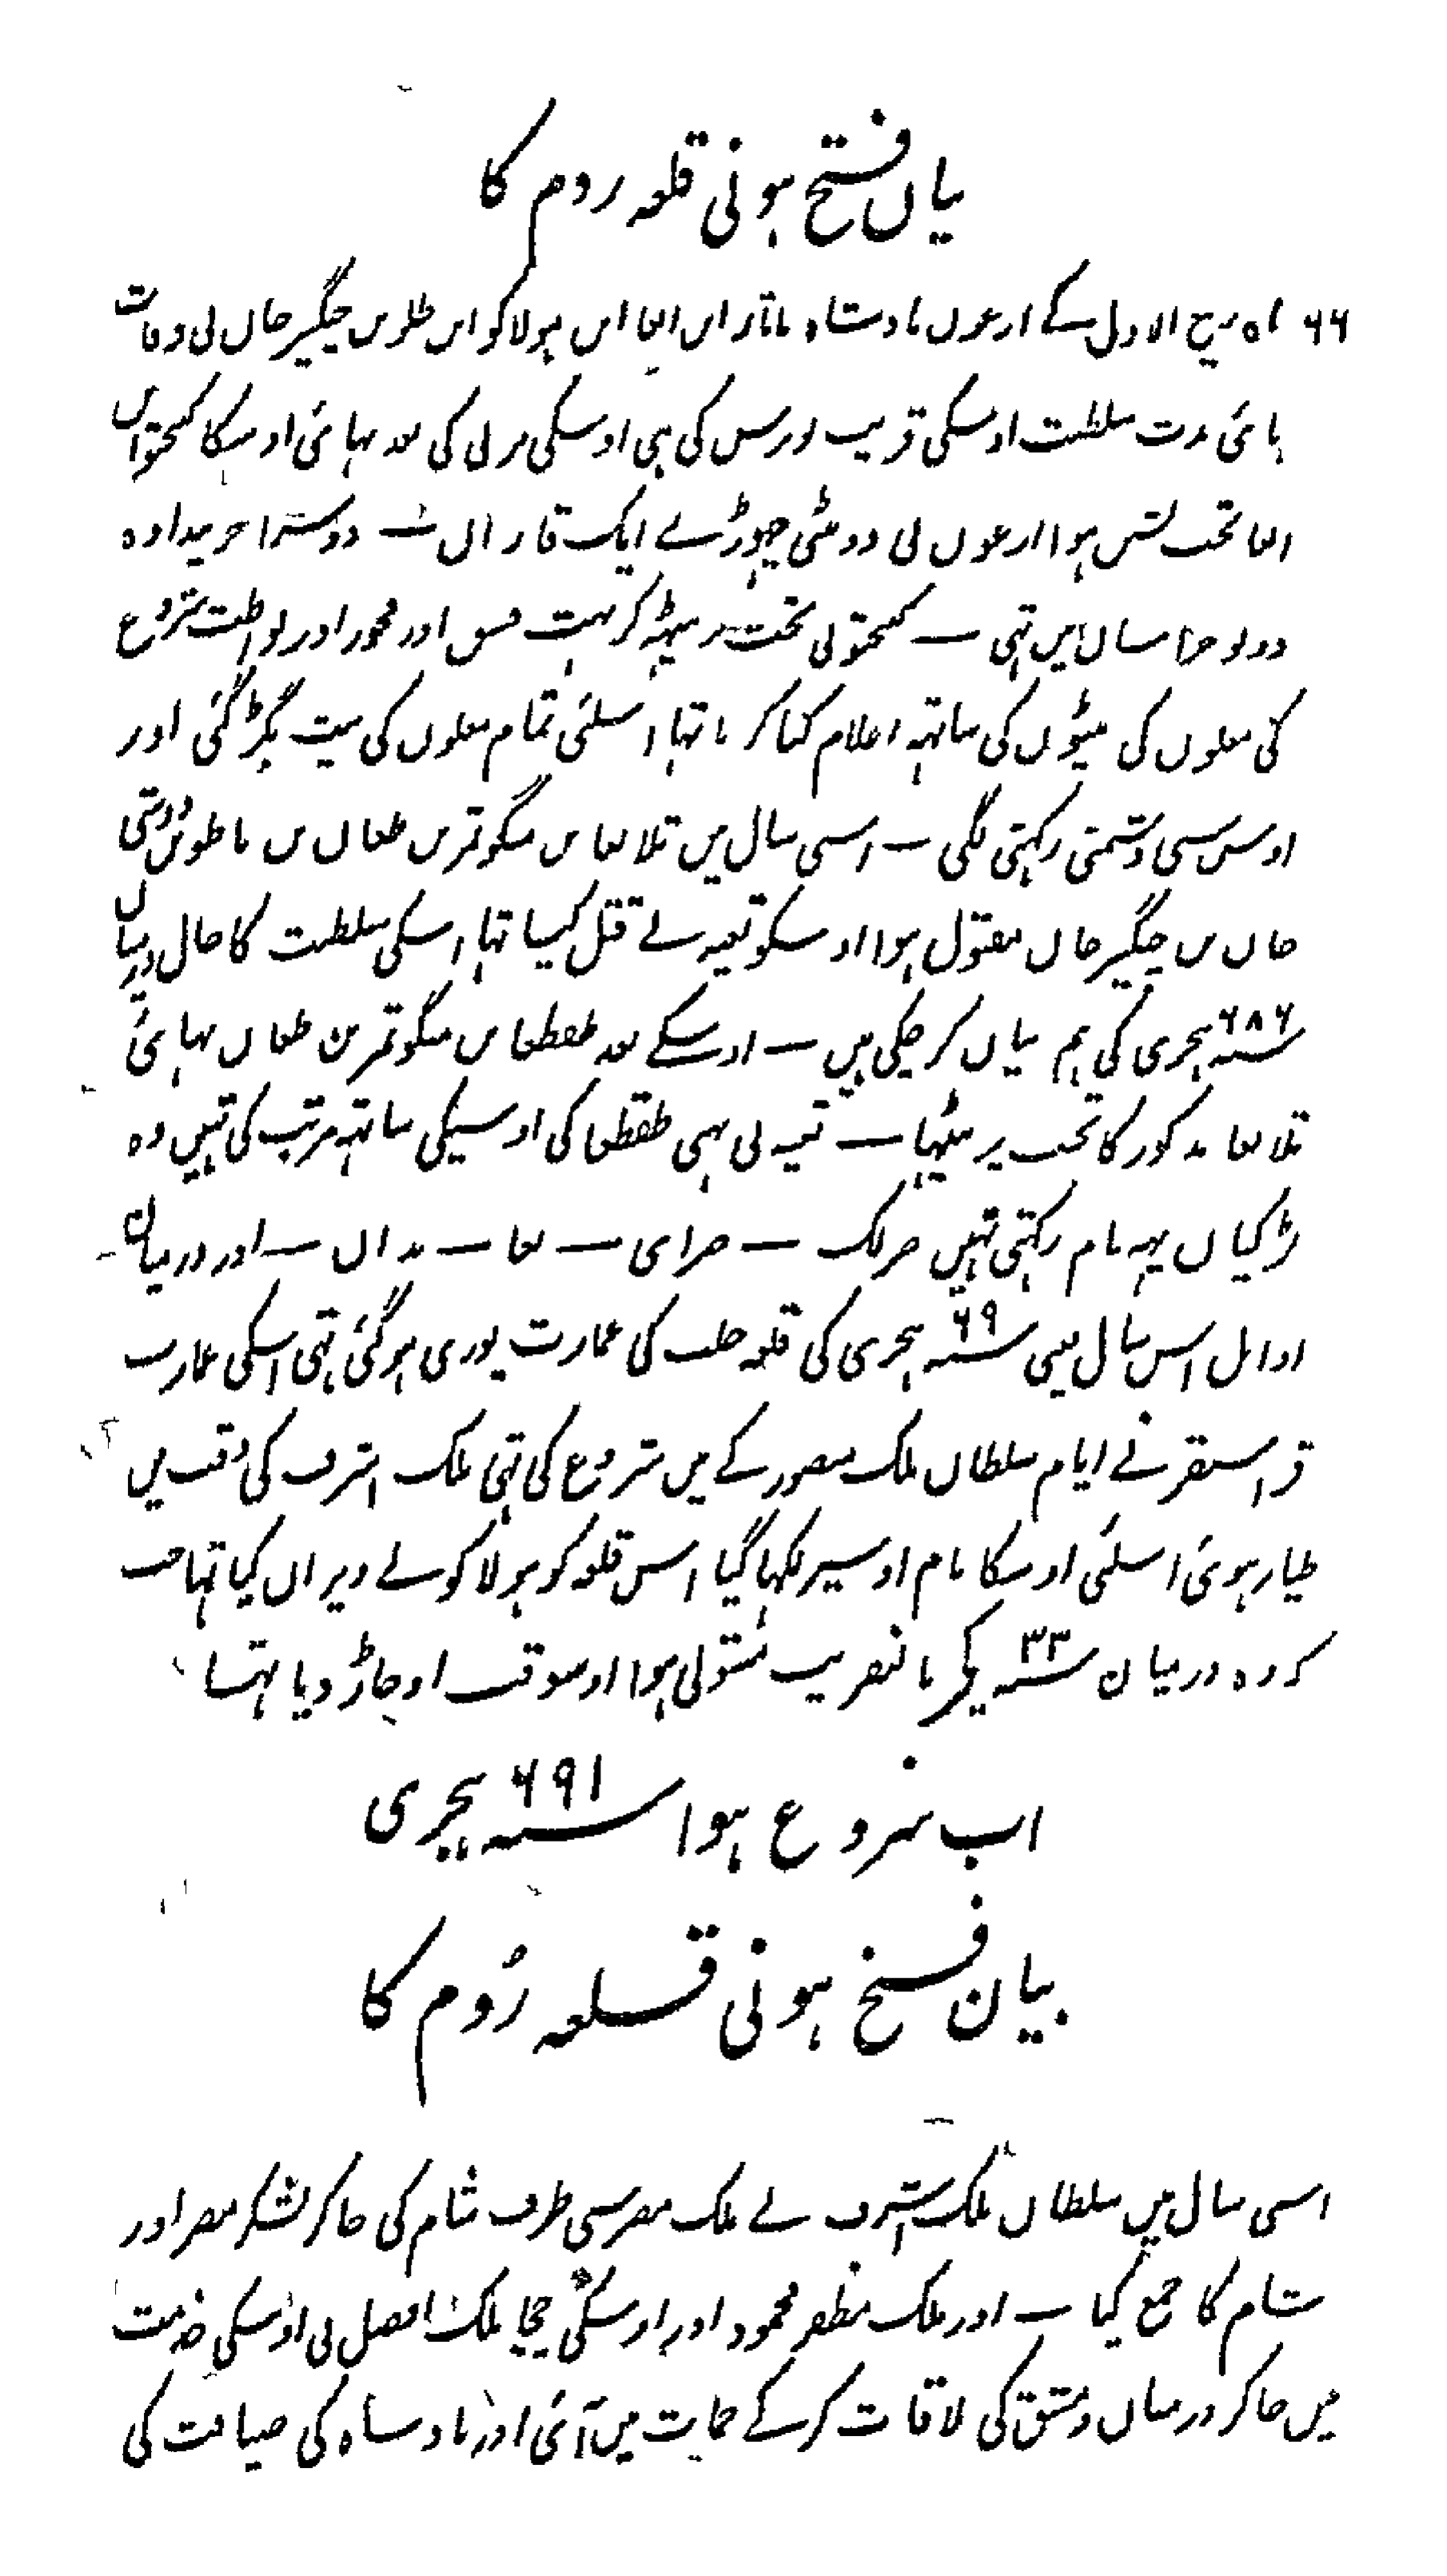 بیان فتح ہونی قلعہ روم کا
۶۶ ماہ ربیع الاول کے ارغون بادشاہ تاتار ابن ابغا ابن ہولاکو ابن طلو بن چنگیز خان نی وفات
پائی مدت سلطنت اوسکی قریب برس کی ہی اوسکی مرنی کی بعد بہائی اوسکا کیختو ابن
ابغا تخت نشین ہوا ارغون نی دو بیٹی چہوڑے ایک قازان — دوسرا خربندا وہ
دونو خراسان میں تہی — کیختو نی تخت پر بیٹہہ کر بہت فسق اور فجور اور لواطت شروع
کی مغلوں کی بیٹوں کی ساتہہ اغلام کیا کرتا تہا اسلئی تمام مغلوں کی نیت بگڑ گئی اور
اوس سی دشمنی رکہتی لگی — اسی سال میں تلابغا بن منگوتمر بن طغان بن باطو بن دوشی
خان بن چنگیز خان مقتول ہوا اوسکو نغیہ نے قتل کیا تہا اسکی سلطنت کا حال درمیان
سنہ ۶۸۶ ہجری کی ہم بیان کر چکی ہیں — اوسکے بعد طقطغا بن منگوتمر بن طغان بہائی
تلابغا مذکور کا تخت پر بیٹہا — نغیہ نی بہی طقطغا کی اوسیکی ساتہہ مرتب کی تہیں وہ
لڑکیاں یہہ نام رکہتی تہیں — صرای — بغا — تدان — اور درمیان
اوائل اس سال یعنی سنہ ۶۹ ہجری کی قلعہ حلب کی عمارت پوری ہو گئی تہی اسکی عمارت
قراسنقر نے ایام سلطان ملک منصور کے میں شروع کی تہی ملک اشرف کی وقت میں
طیار ہوئی اسلئی اوسکا نام اوسپر لکہا گیا اس قلعہ کو ہولاکو نے ویران کیا تہا جب
کہ وہ درمیان سنہ ۳۳ کی بالتقریب مستولی ہوا اوسوقت اوجاڑ دیا تہا
اب شروع ہوا سنہ ۶۹۱ ہجری
بیان فتح ہونی قلعہ رُوم کا
اسی سال میں سلطان ملک اشرف نے ملک مصر سی طرف شام کی جاکر لشکر مصر اور
شام کا جمع کیا — اور ملک مظفر محمود اور اوسکی چچا ملک افضل نی اوسکی خدمت
میں جاکر درمیان دمشق کی ملاقات کر کے حمایت میں آئی اور بادشاہ کی ضیافت کی